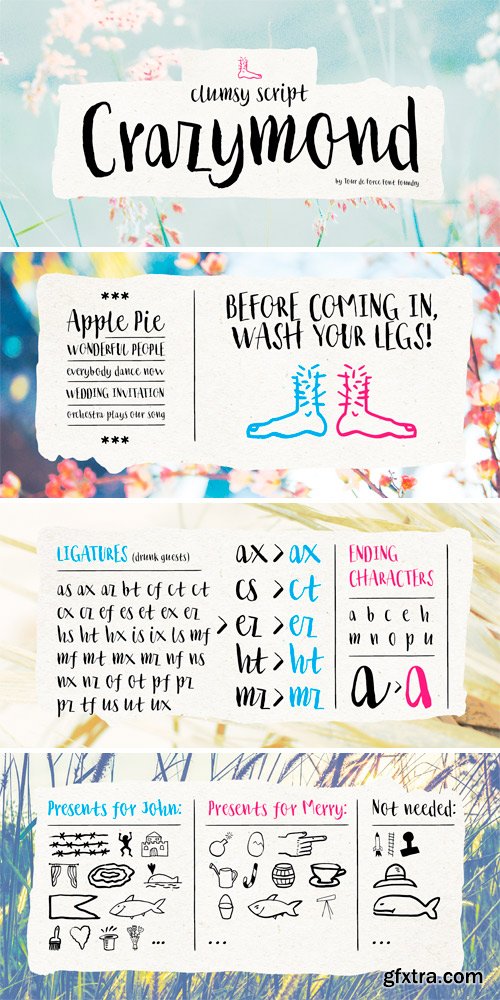 clumsy script
Crazymond
by Tour de Force Font Foundry
***
Apple Pie
WONDERFUL PEOPLE
everybody dance now
WEDDING INVITATION
orchestra plays our song
***
BEFORE COMING IN,
WASH YOUR LEGS!
LIGATURES (drunk guests)
as ax az bt cf ct ct
cx cz ef es et ex ez
hs ht hx is ix ls mf
mf mt mx mz nf ns
nx nz of ot pf pz
pz tf us ut ux
>
ax > ax
cs > ct
ez > ez
ht > ht
mz > mz
ENDING
CHARACTERS
a b c e h
m n o p u
a > a
Presents for John:
...
Presents for Merry:
...
Not needed:
...
gfxtra.com